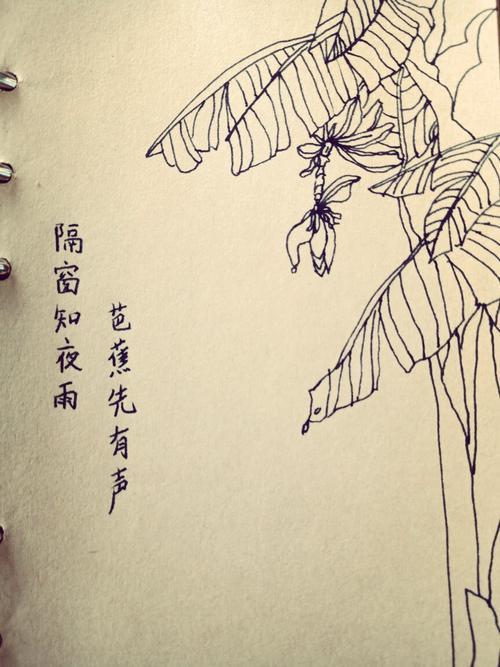 隔窗知夜雨
芭蕉先有声